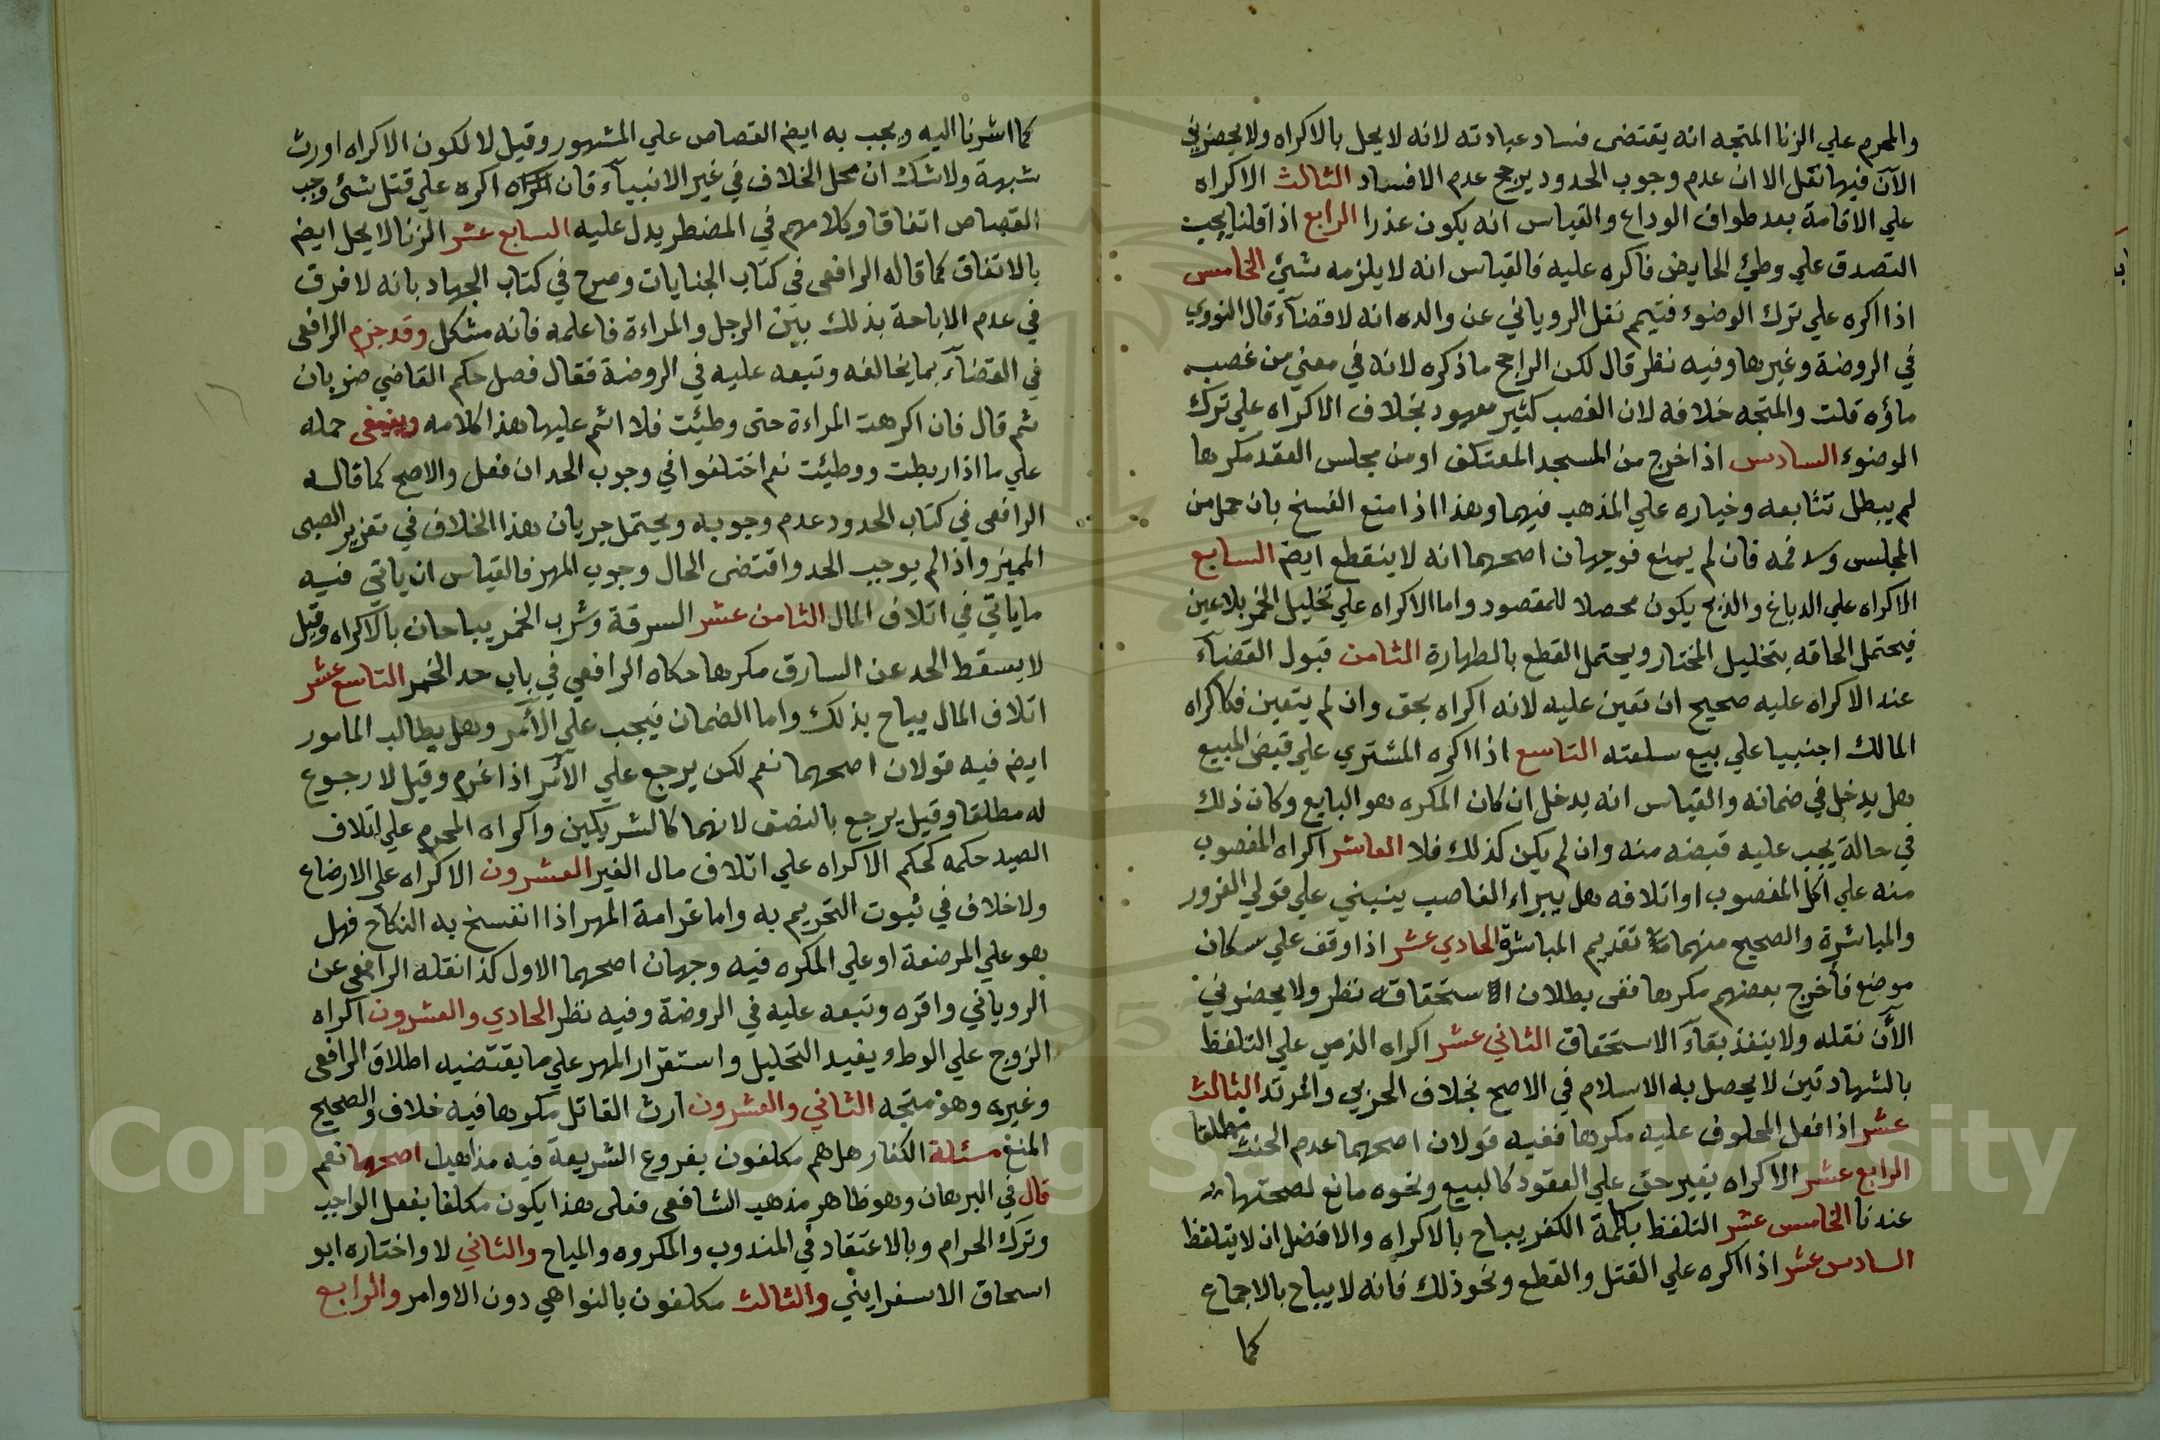 والمحرم علي الزنا المتجه انه يقتضى فساد عبادته لانه لا يحل بالاكراه ولا يحضرني
الآن فيها نقل الا ان عدم وجوب الحدود يرجح عدم الافساد الثالث الاكراه
علي الاقامة بعد طواف الوداع والقياس انه يكون عذرا الرابع اذا قلنا يجب
التصدق علي وطئ الحايض فاكره عليه فالقياس انه لا يلزمه شئ الخامس
اذا اكره علي ترك الوضوء فتيمم نقل الروياني عن والده انه لا قضآء قال النووي
في الروضة وغيرها وفيه نظر قال لكن الراجح ما ذكره لانه في معني من غصب
ماؤه قلت والمتجه خلافه لان الغصب كثير معهود بخلاف الاكراه علي ترك
الوضوء السادس اذا اخرج من المسجد المعتكف او من مجلس العقد مكرها
لم يبطل تتابعه وخياره علي المذهب فيهما وهذا اذا منع الفسخ بان حمل من
المجلس وسد فمه فان لم يمنع فوجهان اصحهما انه لا ينقطع ايض السابع
الاكراه علي الدباغ والذبح يكون محصلا للمقصود واما الاكراه علي تخليل الخمر بلا عين
فيحتمل الحاقه بتخليل المختار ويحتمل القطع بالطهارة الثامن قبول القضآء
عند الاكراه عليه صحيح ان تعين عليه لانه اكراه بحق وان لم يتعين فكاكراه
المالك اجنبيا علي بيع سلعته التاسع اذا اكره المشتري علي قبض المبيع
هل يدخل في ضمانه والقياس انه يدخل ان كان المكره هو البايع وكان ذلك
في حالة يجب عليه قبضه منه وان لم يكن كذلك فلا العاشر اكراه المغصوب
منه علي اكل المغصوب او اتلافه هل يبراء الغاصب ينبني علي قولي الغرور
والمباشرة والصحيح منهما تقديم المباشرة الحادي عشر اذا وقف علي سكان
موضع فأخرج بعضهم مكرها ففى بطلان استحقاقه نظر ولا يحضرني
الآن نقله ولا ينفذ بقآء الاستحقاق الثاني عشر اكراه الذمي علي التلفظ
بالشهادتين لا يحصل به الاسلام في الاصح بخلاف الحربي والمرتد الثالث
عشر اذا فعل المحلوف عليه مكرها ففيه قولان اصحهما عدم الحنث مطلقا
الرابع عشر الاكراه بغير حق علي العقود كالبيع ونحوه مانع لصحتها
عندنا الخامس عشر التلفظ بكلمة الكفر يباح بالاكراه والافضل ان لا يتلفظ
السادس عشر اذا اكره علي القتل والقطع ونحو ذلك فانه لا يباح بالاجماع
كما
كما اشرنا اليه ويجب به ايض القصاص علي المشهور وقيل لا لكون الاكراه اورث
شبهة ولا شك ان محل الخلاف في غير الانبيآء فان اكره علي قتل شئ وجب
القصاص اتفاقا وكلامهم في المضطر يدل عليه السابع عشر الزنا لا يحل ايض
بالاتفاق كما قاله الرافعى فى كتاب الجنايات وصرح في كتاب الجهاد بانه لا فرق
في عدم الاباحة بذلك بين الرجل والمراءة فاعلمه فانه مشكل وقد جزم الرافعى
في القضآء بما يخالفه وتبعه عليه في الروضة فقال فصل حكم القاضي ضربان
ثم قال فان اكرهت المراءة حتى وطيئت فلا اثم عليها هذا كلامه وينبغى حمله
علي ما اذا ربطت ووطيئت نعم اختلفوا في وجوب الحد ان فعل والاصح كما قاله
الرافعى في كتاب الحدود عدم وجوبه ويحتمل جريان هذا الخلاف في تعزير الصبى
المميز واذا لم يوجب الحد واقتضى الحال وجوب المهر فالقياس ان ياتي فيه
ما ياتي في اتلاف المال الثامن عشر السرقة وشرب الخمر يباحان بالاكراه وقيل
لا يسقط الحد عن السارق مكرها حكاه الرافعي في باب حد الخمر التاسع عشر
اتلاف المال يباح بذلك واما الضمان فيجب علي الآمر وهل يطالب المامور
ايض فيه قولان اصحهما نعم لكن يرجع علي الآمر اذا غرم وقيل لا رجوع
له مطلقا وقيل يرجع بالنصف لانهما كالشريكين واكراه المحرم علي اتلاف
الصيد حكمه كحكم الاكراه علي اتلاف مال الغير العشرون الاكراه علي الارضاع
ولا خلاف في ثبوت التحريم به واما غرامة المهر اذا انفسخ به النكاح فهل
هو علي المرضعة او علي المكره فيه وجهان اصحهما الاول كذا نقله الرافعي عن
الروياني واقره وتبعه عليه في الروضة وفيه نظر الحادي والعشرون اكراه
الزوج علي الوطء يفيد التحليل واستقرار المهر علي ما يقتضيه اطلاق الرافعى
وغيره وهو متجه الثاني والعشرون ارث القاتل مكرها فيه خلاف والصحيح
المنع مسئلة الكفار هل هم مكلفون بفروع الشريعة فيه مذاهب اصحها نعم
قال في البرهان وهو ظاهر مذهب الشافعى فعلى هذا يكون مكلفا بفعل الواجب
وترك الحرام وبالاعتقاد في المندوب والمكروه والمباح والثاني لا واختاره ابو
اسحاق الاسفرايني والثالث مكلفون بالنواهي دون الاوامر والرابع
Copyright © King Saud University